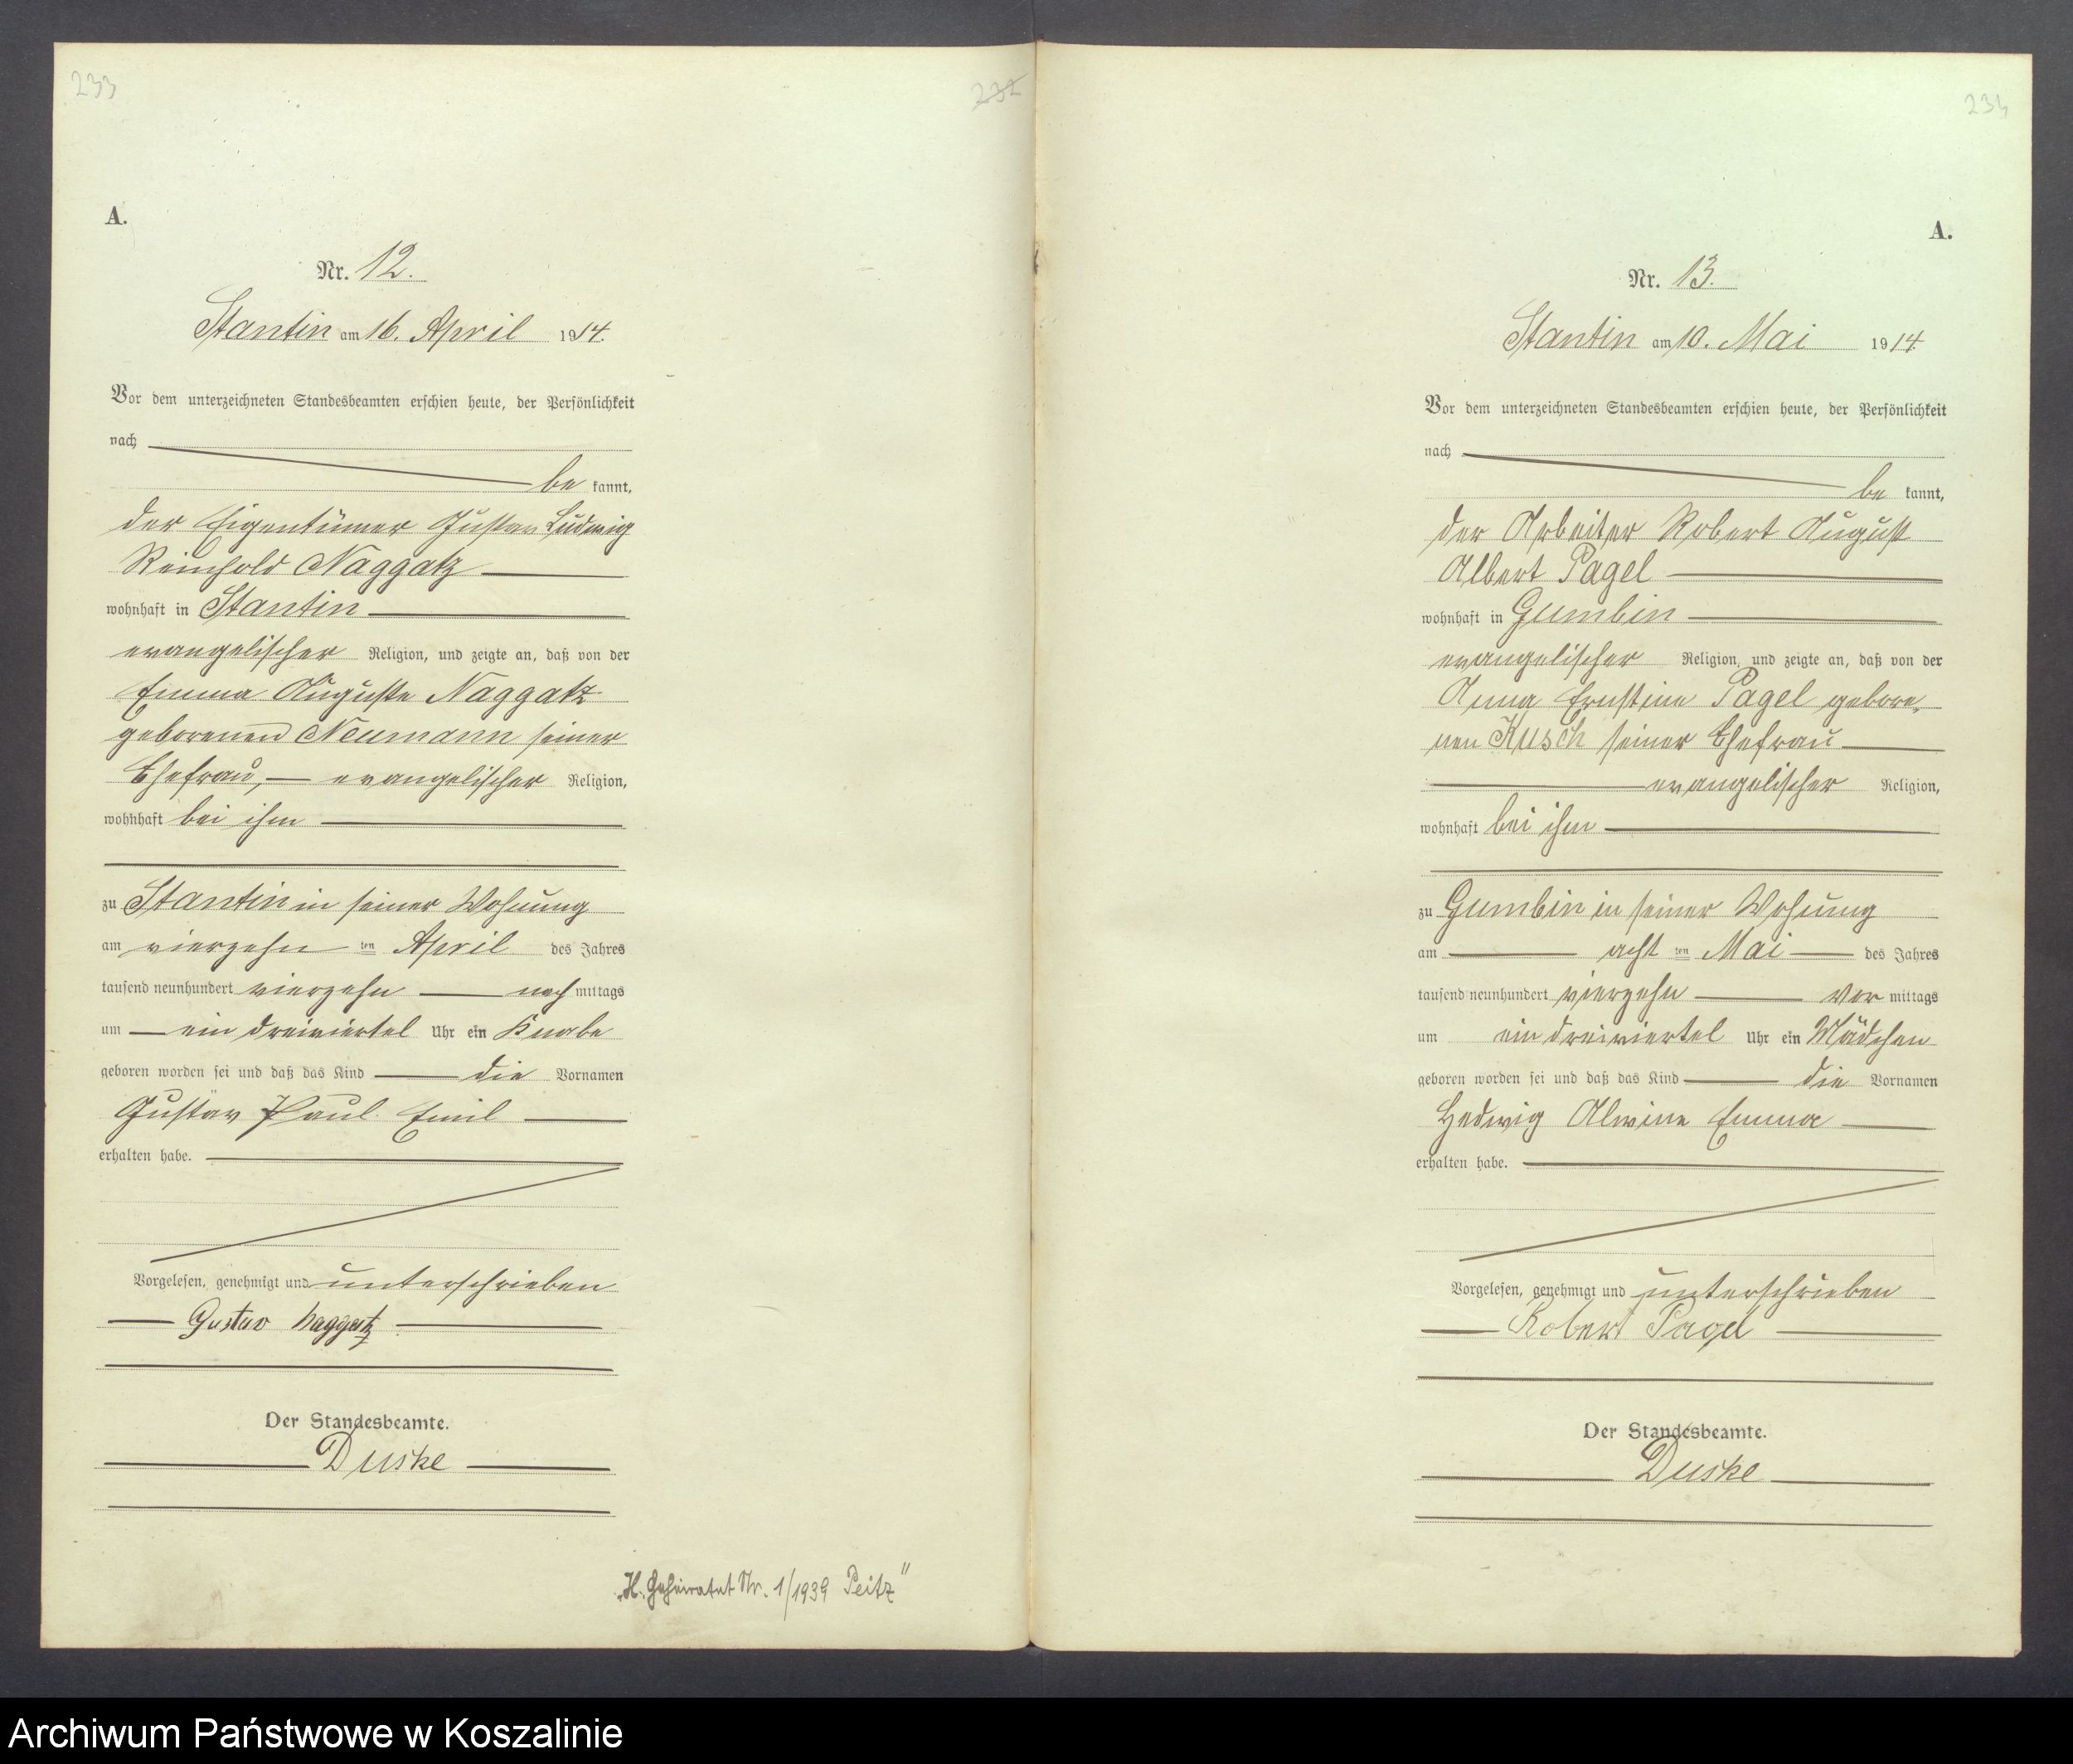 233
232
A.
Nr. 12.
Stantin am 16. April 1914.
Vor dem unterzeichneten Standesbeamten erschien heute, der Persönlichkeit
nach
be kannt,
der Eigentümer Gustav Ludwig
Reinhold Naggatz
wohnhaft in Stantin
evangelischer Religion, und zeigte an, daß von der
Emma Auguste Naggatz
geborenen Neumann seiner
Ehefrau, evangelischer Religion,
wohnhaft bei ihm
zu Stantin in seiner Wohnung
am vierzehn ten April des Jahres
tausend neunhundert vierzehn nach mittags
um ein dreiviertel Uhr ein Knabe
geboren worden sei und daß das Kind die Vornamen
Gustav Paul Emil
erhalten habe.
Vorgelesen, genehmigt und unterschrieben
Gustav Naggatz
Der Standesbeamte.
Duske
„H. Geheiratet Nr. 1/1939 Peitz"
233
A.
Nr. 13.
Stantin am 10. Mai 1914.
Vor dem unterzeichneten Standesbeamten erschien heute, der Persönlichkeit
nach
be kannt,
der Arbeiter Robert August
Albert Pagel
wohnhaft in Gumbin
evangelischer Religion, und zeigte an, daß von der
Anna Ernstine Pagel gebore„
nen Kusch seiner Ehefrau
evangelischer Religion,
wohnhaft bei ihm
zu Gumbin in seiner Wohnung
am acht ten Mai des Jahres
tausend neunhundert vierzehn vor mittags
um ein dreiviertel Uhr ein Mädchen
geboren worden sei und daß das Kind die Vornamen
Hedwig Alwine Emma
erhalten habe.
Vorgelesen, genehmigt und unterschrieben
Robert Pagel
Der Standesbeamte.
Duske
Archiwum Państwowe w Koszalinie